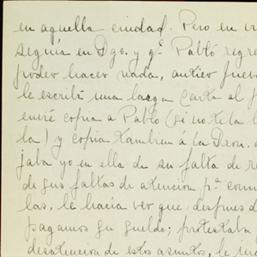 en aquella ciudad. Pero en vi
seguía en Dgo. y qe. Pablo regre
poder hacer nada, antier fue
le escribí una larga carta al p
envié copia a Pablo (si no te la l
la) y copia tambien á la Dion. d
jaba yo en ella de su falta de r
de sus faltas de atencion pa. conm
las, le hacía ver que despues d
pagamos su sueldo; protestaba
desatencion de estos asuntos, le in